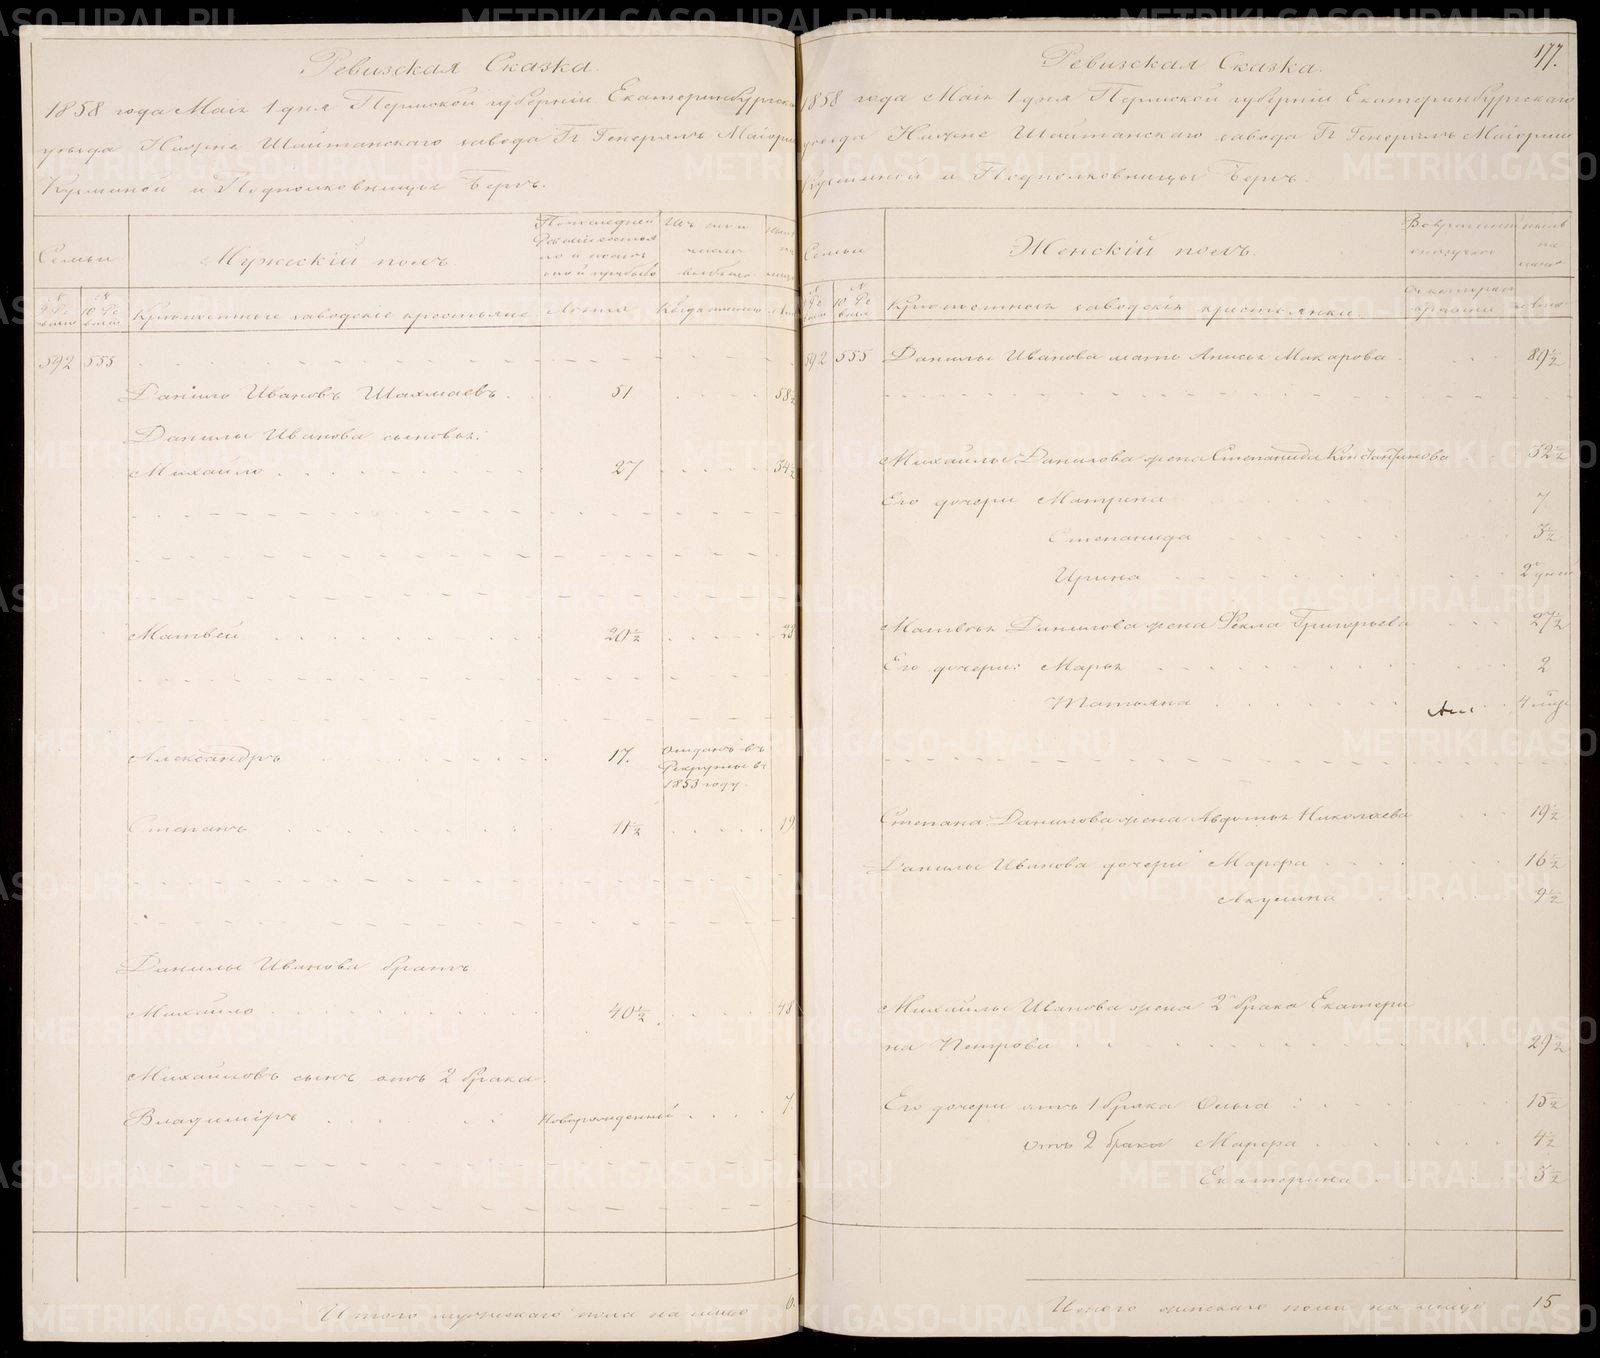 Ревизская Сказка.
1858 года Маія 1 дня Пермской губерніи Екатеринбургска
уезда Нижне Шайтанскаго завода Гг Генералъ Маіорши
Кузминой и Подполковницы Бергъ.
Семьи
Мужескій полъ
По последней
Ревизіи состоя
ло и после
оной прибыло
Изъ того
числа
выбыло
9 Ре
10 Ре
Крепостные заводскіе крестьяне
Лета
Когда именно
592 555
Данило Ивановъ Шахмаевъ 51 58½
Данилы Иванова сыновья:
Михайло 27 34½
Матвей 20½ 28
Александръ 17. отданъ въ
Рекруты въ
1853 году.
Степанъ 11½ 19
Данилы Иванова братъ
Михайло 40½ 48
Михайловъ сынъ отъ 2 брака:
Владиміръ Новорожденный 7.
Итого мужескаго пола на лицо 6.
177.
Ревизская Сказка.
1858 года Маія 1 дня Пермской губерніи Екатеринбургскаго
уезда Нижне Шайтанскаго завода Гг Генералъ Маіорши
Кузминой и Подполковницы Бергъ.
Семьи
Женскій полъ.
Во временной
отлучке
ныне
на
лицо
9 Ре
10 Ре
Крепостныя заводскія крестьянки.
592 555 Данилы Иванова мать Анисья Макарова 89½
Михайлы Данилова жена Степанида Константинова 32½
Его дочери Матрена 7
Степанида 3½
Ирина 2 дней
Матвея Данилова жена Фекла Григорьева 27½
Его дочери: Марья 2
Татьяна 4 мес
Степана Данилова жена Авдотья Николаева 19½
Данилы Иванова дочери Марфа 16½
Акулина 9½
Михайлы Иванова жена 2го брака Екатери
на Петрова 29½
Его дочери отъ 1 брака Ольга: 15½
отъ 2 брака Марфа 4½
Екатерина 3½
Итого женскаго пола на лицо 15
METRIKI.GASO-URAL.RU